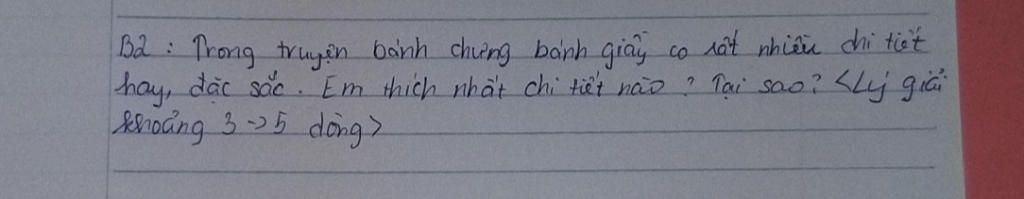 B2 : Trong truyện bánh chưng bánh giầy có rất nhiều chi tiết
hay, đặc sắc. Em thích nhất chi tiết nào? Tại sao? <Lý giải
khoảng 3->5 dòng>